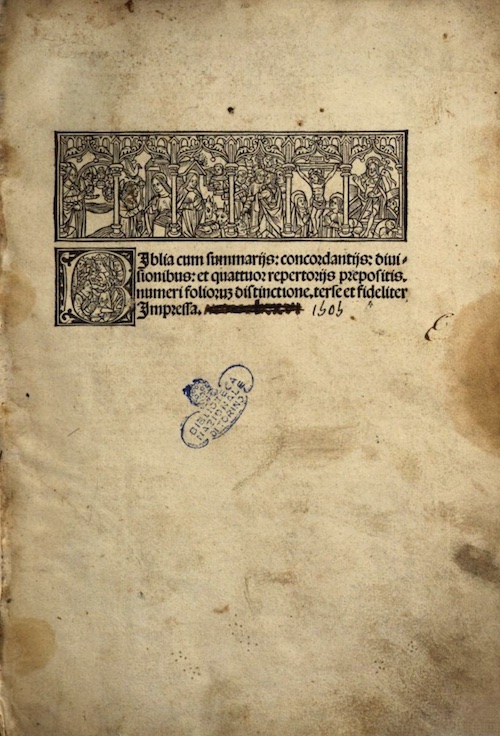 Biblia cum summarijs: concordantijs: diui-
sionibus: et quattuor repertorijs prepositis.
numeri folioruz distinctione. terse et fideliter
Impressa. 1503
BIBLIOTECA
NAZIONALE
DI TORINO